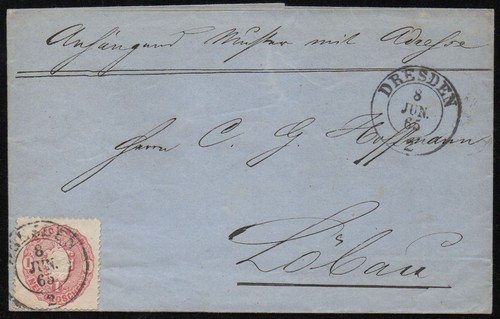 Anhängend Muster mit Adresse
DRESDEN
8
JUN.
65
2
Herrn C. G. Hoffmann
Löbau
DRESDEN
8
JUN.
65
2